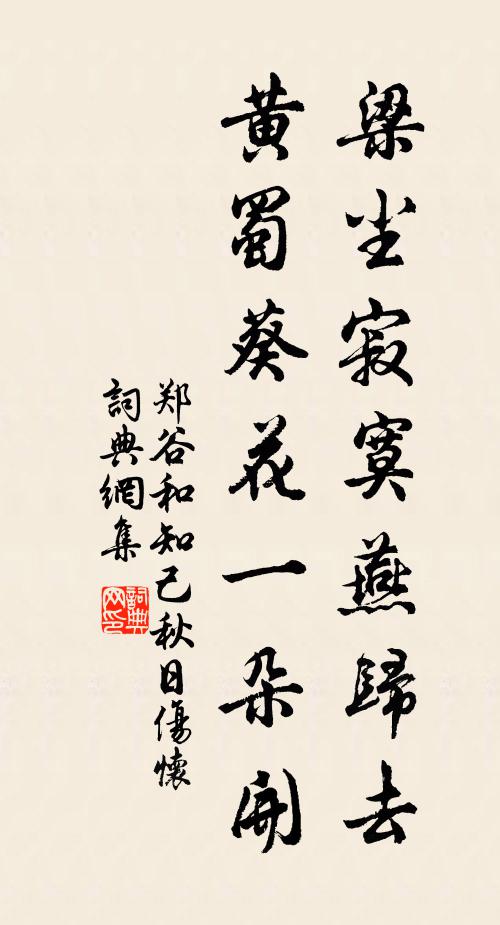 梁尘寂寞燕歸去
黄蜀葵花一朵開
郑谷和知己秋日傷懷
詞典網集
詞典网印